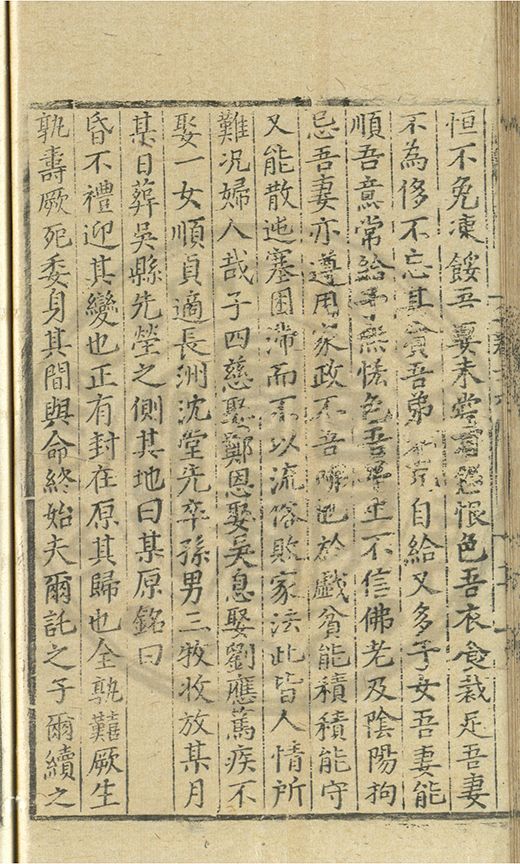 恒不免凍餒吾妻未嘗有慍恨色吾衣食裁足吾妻
不為侈不忘其貧吾弟不自給又多子女吾妻能
順吾意常給無恡色吾平生不信佛老及陰陽拘
忌吾妻亦遵用家政不吾於戲貧能積積能守
又能散迍蹇困滯而不以流俗敗家法此皆人情所
難况婦人哉子四慈娶鄭恩娶吳息娶劉應篤疾不
娶一女順貞適長洲沈堂先卒孫男三牧收放某月
某日葬吳縣先塋之側其地曰某原銘曰
昏不禮迎其變也正有封在原其歸也全孰囏厥生
孰壽厥死委身其間與命終始夫爾託之子爾續之